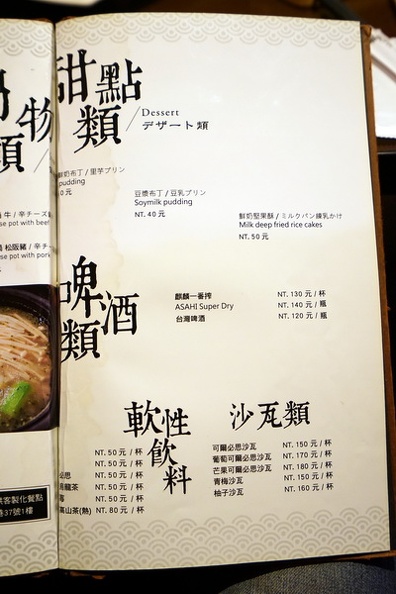 甜點類
Dessert
デザート類
鮮奶布丁 / 里芋プリン
pudding
0 元
豆漿布丁 / 豆乳プリン
Soymilk pudding
NT. 40 元
鮮奶堅果酥 / ミルクパン練乳かけ
Milk deep fried rice cakes
NT. 50 元
物類
牛 / 辛チーズ
se pot with beef
松阪豬 / 辛チ
se pot with pork
啤酒類
麒麟一番搾 NT. 130 元 / 杯
ASAHI Super Dry NT. 140 元 / 瓶
台灣啤酒 NT. 120 元 / 瓶
軟性飲料
NT. 50 元 / 杯
NT. 50 元 / 杯
必思 NT. 50 元 / 杯
烏龍茶 NT. 50 元 / 杯
NT. 50 元 / 杯
高山茶(熱) NT. 80 元 / 杯
沙瓦類
可爾必思沙瓦 NT. 150 元 / 杯
葡萄可爾必思沙瓦 NT. 170 元 / 杯
芒果可爾必思沙瓦 NT. 180 元 / 杯
青梅沙瓦 NT. 150 元 / 杯
柚子沙瓦 NT. 160 元 / 杯
客製化餐點
37號1樓